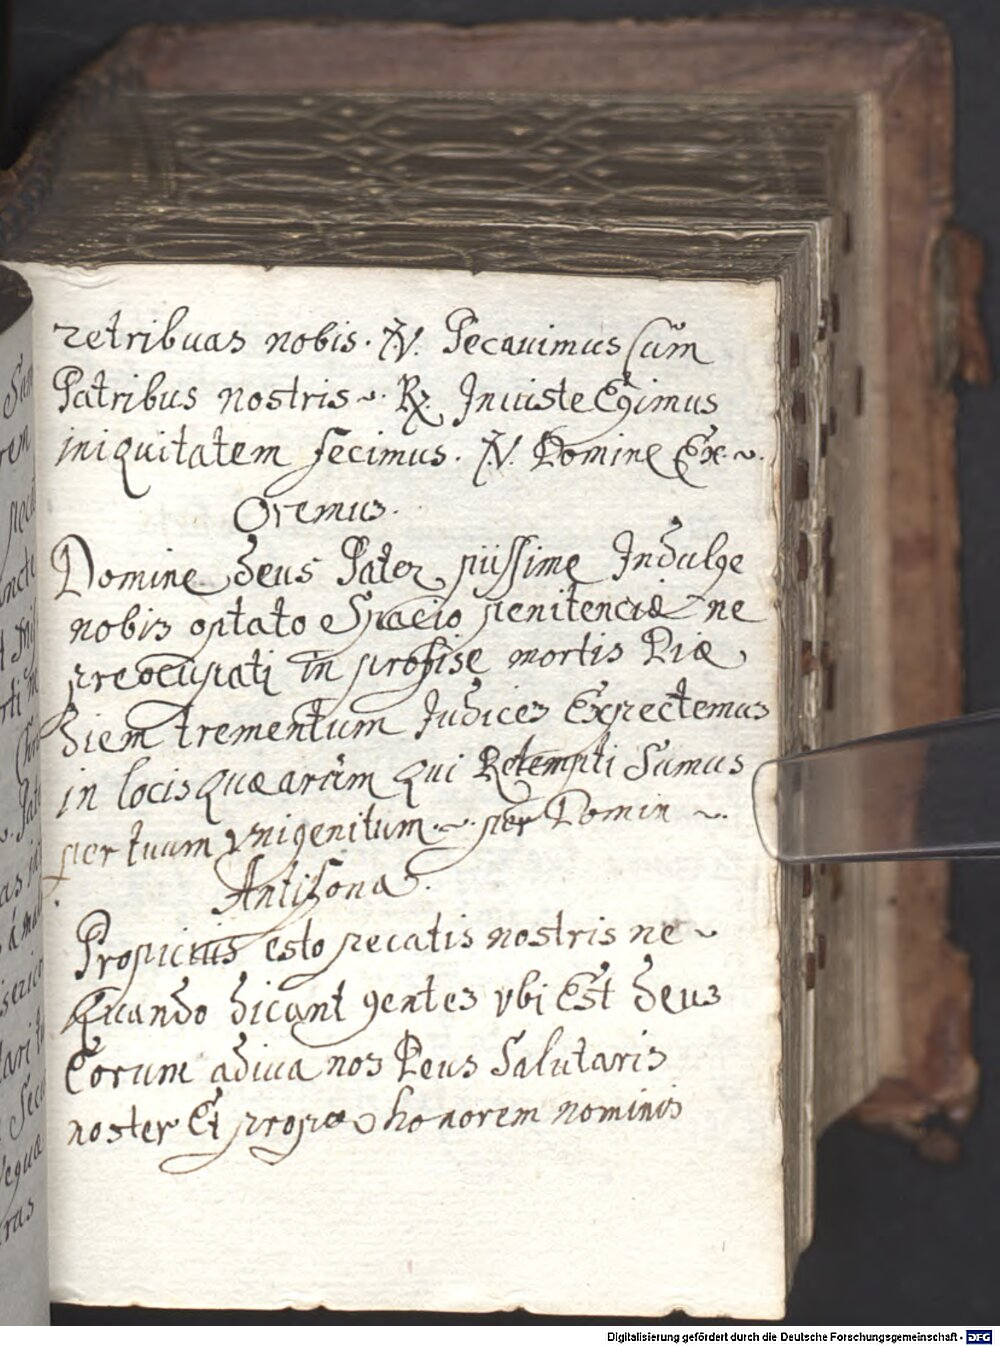 retribuas nobis. ℣. Pecauimus cum
Patribus nostris ~. ℟. Iniuste Egimus
iniquitatem fecimus. ℣. Domine Ex ~.
Oremus.
Domine deus Pater piissime Indulge
nobis optato Spacio penitenciæ ne
preocupati in profise mortis Diæ
diem trementum Iudices Expectemus
in locis quæarum qui Retempti Sumus
per tuum vnigenitum. ~. per Domin ~.
Antifona.
Propicius esto pecatis nostris ne ~
Quando dicant gentes vbi Est deus
Eorum adiua nos Deus Salutaris
noster Et propæ honorem nominis
Digitalisierung gefördert durch die Deutsche Forschungsgemeinschaft - DFG